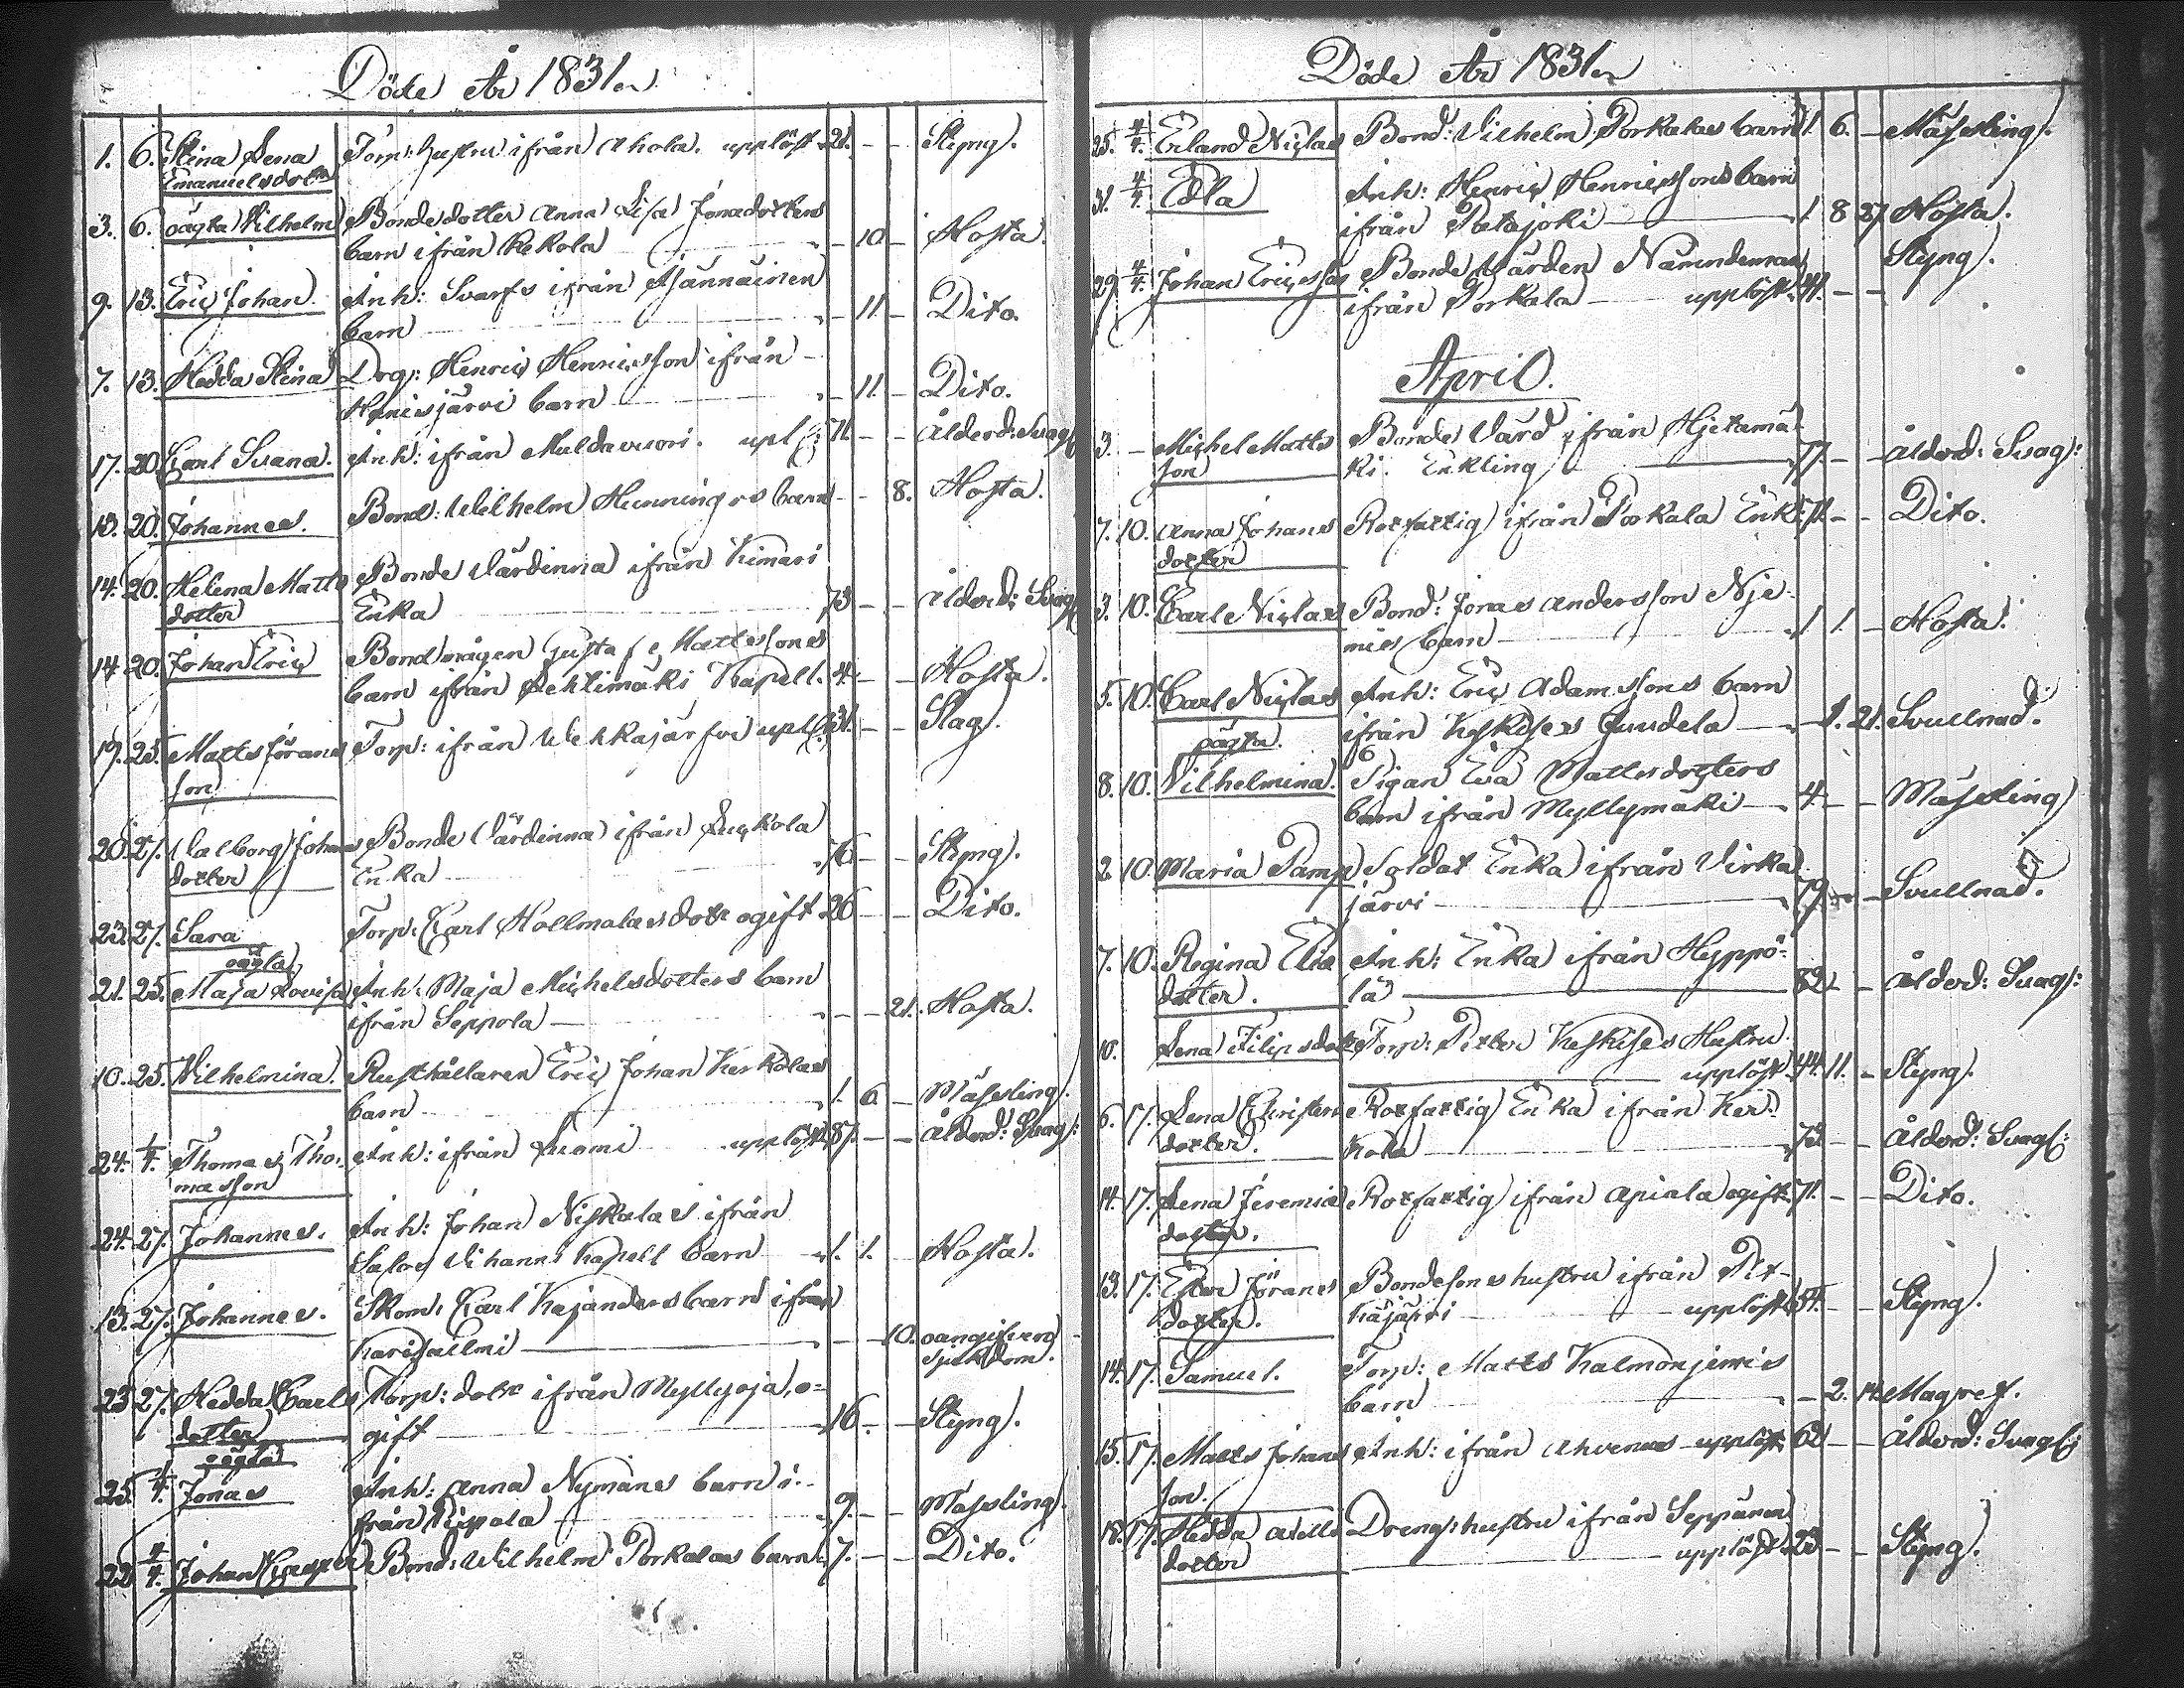 Döde År 1831.
1. 6. Stina Lena Torp: hustru ifrån Ahola. upplöst 21. - - Styng.
Emanuelsdott:
3. 6. oägta Vilhelm Bonde dotter Anna Lisa Jonædotters
barn ifrån Kekola - 10 - Hosta.
9. 13. Eric Johan. Inh: Svarfs ifrån
barn - 11 - Dito.
7. 13. Hedda Stina Drg: Henric Henricsson ifrån
barn - 11. - Dito.
17. 20. Carl Svana. Inh: ifrån Muldavuori. upl: 71. - - Ålderd: Svag:
13. 20. Johannes. Bond: Wilhelm Hennings barn - - 8. Hosta.
14. 20. Helena Matts Bonde Värdinna ifrån Kimari
dotter Enka 73 - - Ålderd: Svag:
14. 20. Johan Eric Bondmågen Gustaf Mattssons
barn ifrån Lehtimäki Kapell. 4. - - Hosta.
19. 25. Matts Jörans Torp: ifrån upl: 31. - - Slag.
son
20. 27. Valborg Johans Bonde Värdinna ifrån Luckola
dotter Enka 76 - - Styng.
23. 27. Sara Torp: Carl Hollmalas dott ogift 26 - - Dito.
oägta
21. 25. Maja Lovisa Inh: Maja Michelsdotters barn
ifrån Seppola - - 21. Hosta.
10. 25. Vilhelmina. Rusthållaren Eric Johan Kerkolas
barn 1. 6 - Mässling.
24. 1/4. Thomas Tho- Inh: ifrån Luomi upplöst 87. - - Ålderd: Svag:
masson
24. 27. Johannes. Inh: Johan Niskalas ifrån
Salo Vihanns Kapell barn 1. 1. Hosta.
13. 27. Johannes. Skom: Carl Kajanders barn ifrån
Karisalmi - - 10. oangifven
sjukdom.
23. 27. Hedda Carls Torp: dott ifrån Myllyoja, o-
dotter gift 16 - - Styng.
oägta
25. 4/4. Jonas Inh: Anna Nymans barn i-
från Piipola 9. - - Mässling.
22. 4/4. Johan Casper Bond: Wilhelm Porkalas barn 7. - - Dito.
Döde År 1831.
25. 4/4. Erland Niclas Bond: Vilhelm Porkalas barn 1. 6. - Mässling.
31. 4/4. Edla Inh: Henric Henricssons barn
ifrån Patajoki 1. 8 27 Hosta.
29. 4/4. Johan Ericsson Bonde Värden Nämndeman Styng.
ifrån Porkala upplöst. 44. - -
April.
3. - Michel Matts Bonde Värd ifrån Hjetamä-
son ki. Enkling 77. - - Ålderd: Svag:
7. 10. Anna Johans Rotfattig ifrån Porkala Enk: 71. - - Dito.
dotter
3. 10. Carl Niclas Bond: Jonas Andersson Nje-
mis barn 1 1. - Hosta.
5. 10. Carl Niclas Inh: Eric Adamssons barn
ifrån Keskises Juudela - 1. 21. Svullnad.
oägta.
8. 10. Vilhelmina. Pigan Eva Mattsdotters
barn ifrån Myllymäki 4. - - Mässling
2 10. Maria Pamp Soldat Enka ifrån Virka
järvi 79. - - Svullnad.
7. 10. Regina Elia Inh: Enka ifrån Heppo-
dotter. la 82 - - Ålderd: Svag:
10. Lena Filipsdott Torp: Petter Keskises Hustru
upplöst. 44. 11. - Styng.
6. 17. Lena Christers Rotfattig Enka ifrån Ker-
dotter. kola 73 - - Ålderd: Svag:
14. 17. Lena Jeremia Rotfattig ifrån Apiala ogift. 71. - - Dito.
dotter.
13. 17. Ester Jörans Bondesons hustru ifrån Pit-
dotter. käjärvi upplöst. 54. - - Styng.
14. 17. Samuel. Torp: Matts Kalmonjemis
barn - 2. 14. Magref.
15. 17. Matts Johans Inh: ifrån Ahvenus upplöst 62 - - Ålderd: Svag:
son.
18. 17. Hedda Drengs: hustru ifrån Seppänen
dotter upplöst. 23 - - Styng.